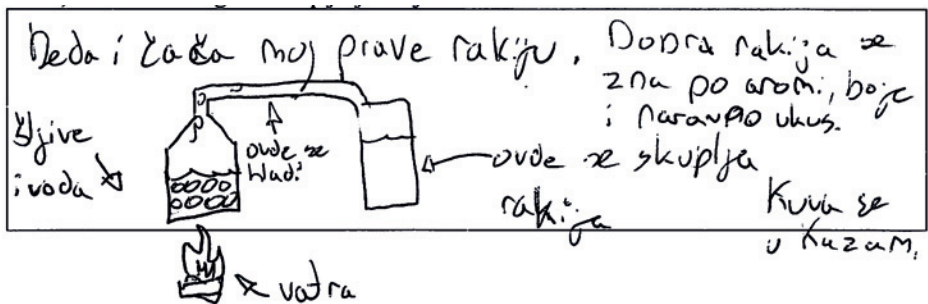 Deda i ćaća moj prave rakiju.
Dobra rakija se
zna po aromi, boje
i naravno ukus.
Šljive
i voda
ovde se
hladi
ovde se skuplja
rakija
Kuva se
u kazam.
vatra